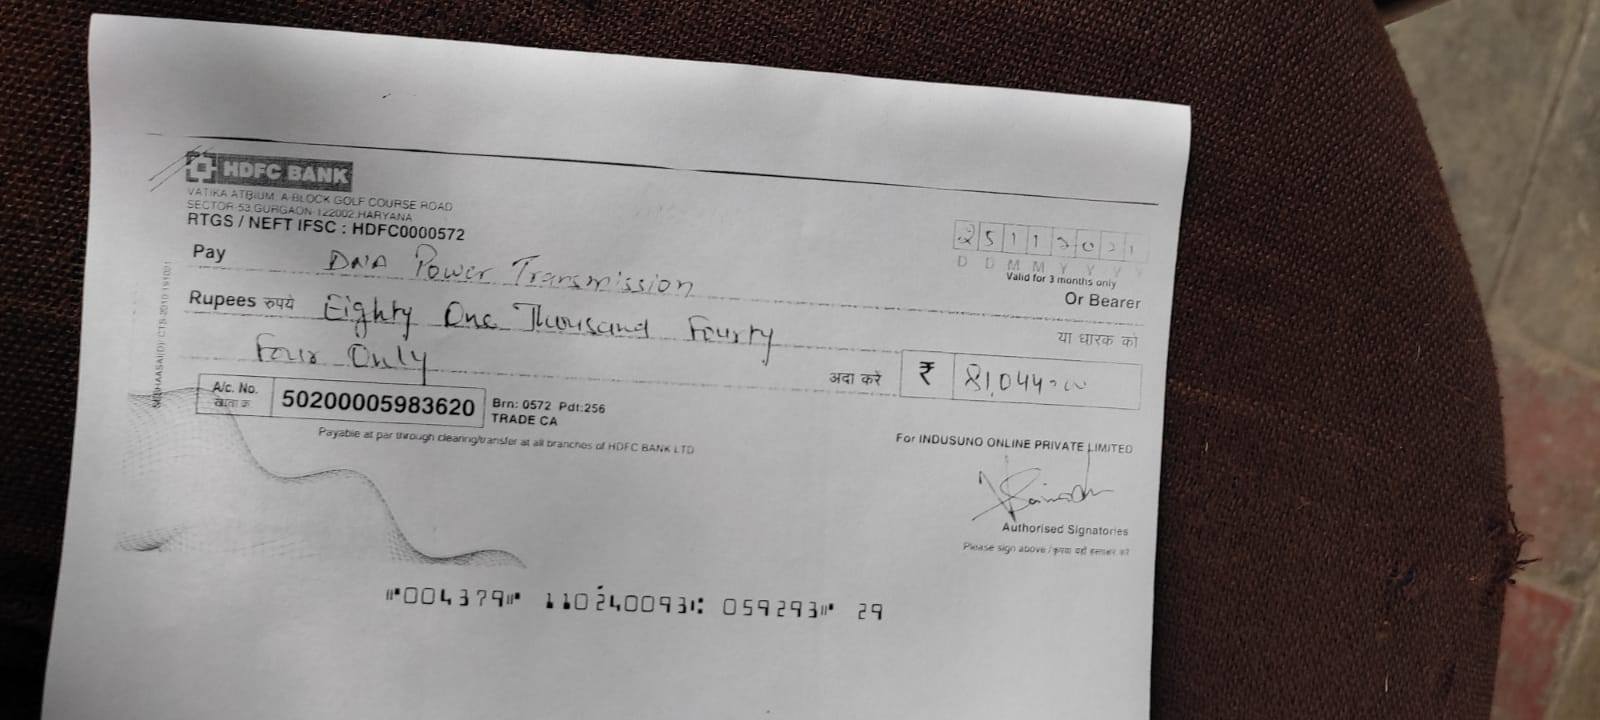 HDFC BANK
VATIKA ATRIUM, A-BLOCK GOLF COURSE ROAD
SECTOR-53,GURGAON-122002,HARYANA
RTGS / NEFT IFSC : HDFC0000572
25112021
D D M M Y Y Y Y
Valid for 3 months only
Pay DNA Power Transmission
Or Bearer
Rupees रुपये Eighty One Thousand Fourty
या धारक को
Four Only
अदा करें ₹ 81,044=00
A/c. No. 50200005983620 Brn: 0572 Pdt:256
TRADE CA
Payable at par through clearing/transfer at all branches of HDFC BANK LTD
For INDUSUNO ONLINE PRIVATE LIMITED
Authorised Signatories
Please sign above /
⑈004379⑈ 110240093⑆ 059293⑈ 29